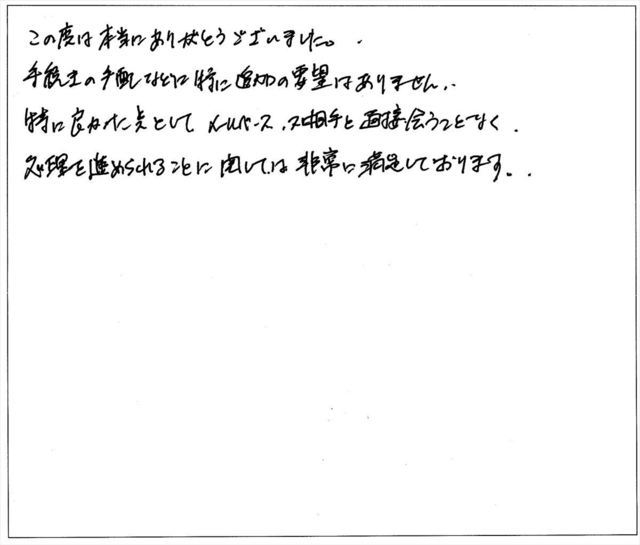 この度は本当にありがとうございました。
手続きの手配などは特に追加の要望はありません。
特に良かった点としてメールベース、又相手と直接会うことなく
処理を進められることに関しては非常に満足しております。